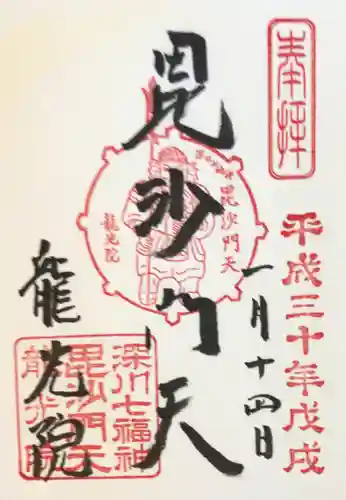 奉拝
平成三十年戊戌
一月十四日
毘沙門天
毘沙門天
龍光院
龍光院
深川七福神
毘沙門天
龍光院